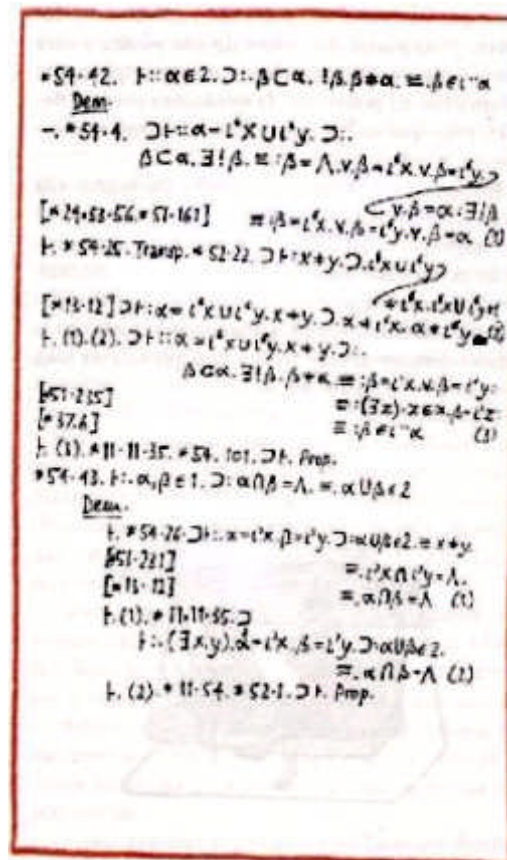 *54·42. ⊢:: α∈2. ⊃:. β⊂α. !β. β≠α. ≡. β∈ι“α
Dem.
⊢. *54·4. ⊃⊢:: α=ι‘x∪ι‘y. ⊃:.
β⊂α. ∃!β. ≡: β=Λ. v. β=ι‘x. v. β=ι‘y.
v. β=α: ∃!β
[*24·53·56. *51·161] ≡: β=ι‘x. v. β=ι‘y. v. β=α (1)
⊢. *54·25. Transp. *52·22. ⊃⊢: x≠y. ⊃. ι‘x∪ι‘y
≠ι‘x. ι‘x∪ι‘y≠
[*13·12] ⊃⊢: α=ι‘x∪ι‘y. x≠y. ⊃. α≠ι‘x. α≠ι‘y (2)
⊢. (1). (2). ⊃⊢:: α=ι‘x∪ι‘y. x≠y. ⊃:.
β⊂α. ∃!β. β≠α. ≡: β=ι‘x. v. β=ι‘y:
[*51·235] ≡: (∃z). z∈α. β=ι‘z:
[*37·6] ≡: β∈ι“α (3)
⊢. (3). *11·11·35. *54·101. ⊃⊢. Prop.
*54·43. ⊢:. α, β∈1. ⊃: α∩β=Λ. ≡. α∪β∈2
Dem.
⊢. *54·26. ⊃⊢:. α=ι‘x. β=ι‘y. ⊃: α∪β∈2. ≡. x≠y.
[*51·231] ≡. ι‘x∩ι‘y=Λ.
[*13·12] ≡. α∩β=Λ (1)
⊢. (1). *11·11·35. ⊃
⊢:. (∃x, y). α=ι‘x. β=ι‘y. ⊃: α∪β∈2.
≡. α∩β=Λ (2)
⊢. (2). *11·54. *52·1. ⊃⊢. Prop.